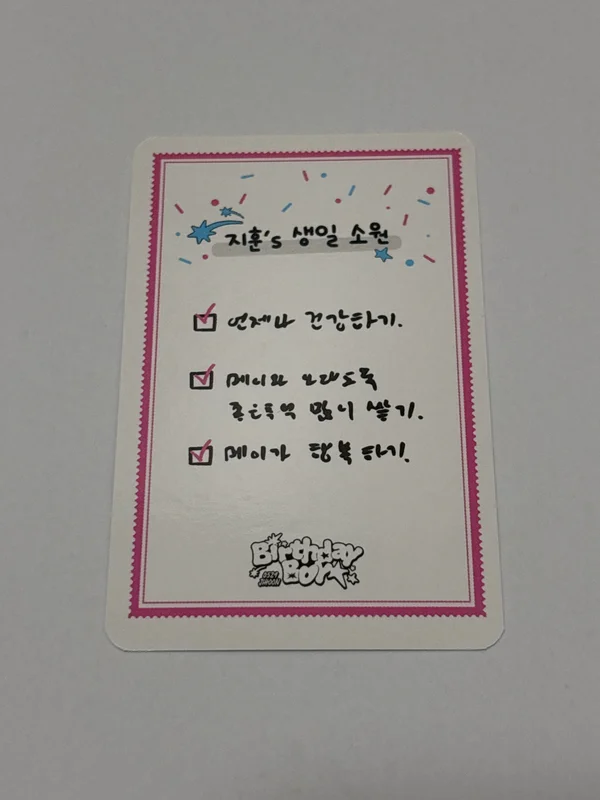 지훈's 생일 소원
언제나 건강하기.
메이와 오래도록
좋은추억 많이 쌓기.
메이가 행복하기.
Birthday
BOY
0529
JIHOON